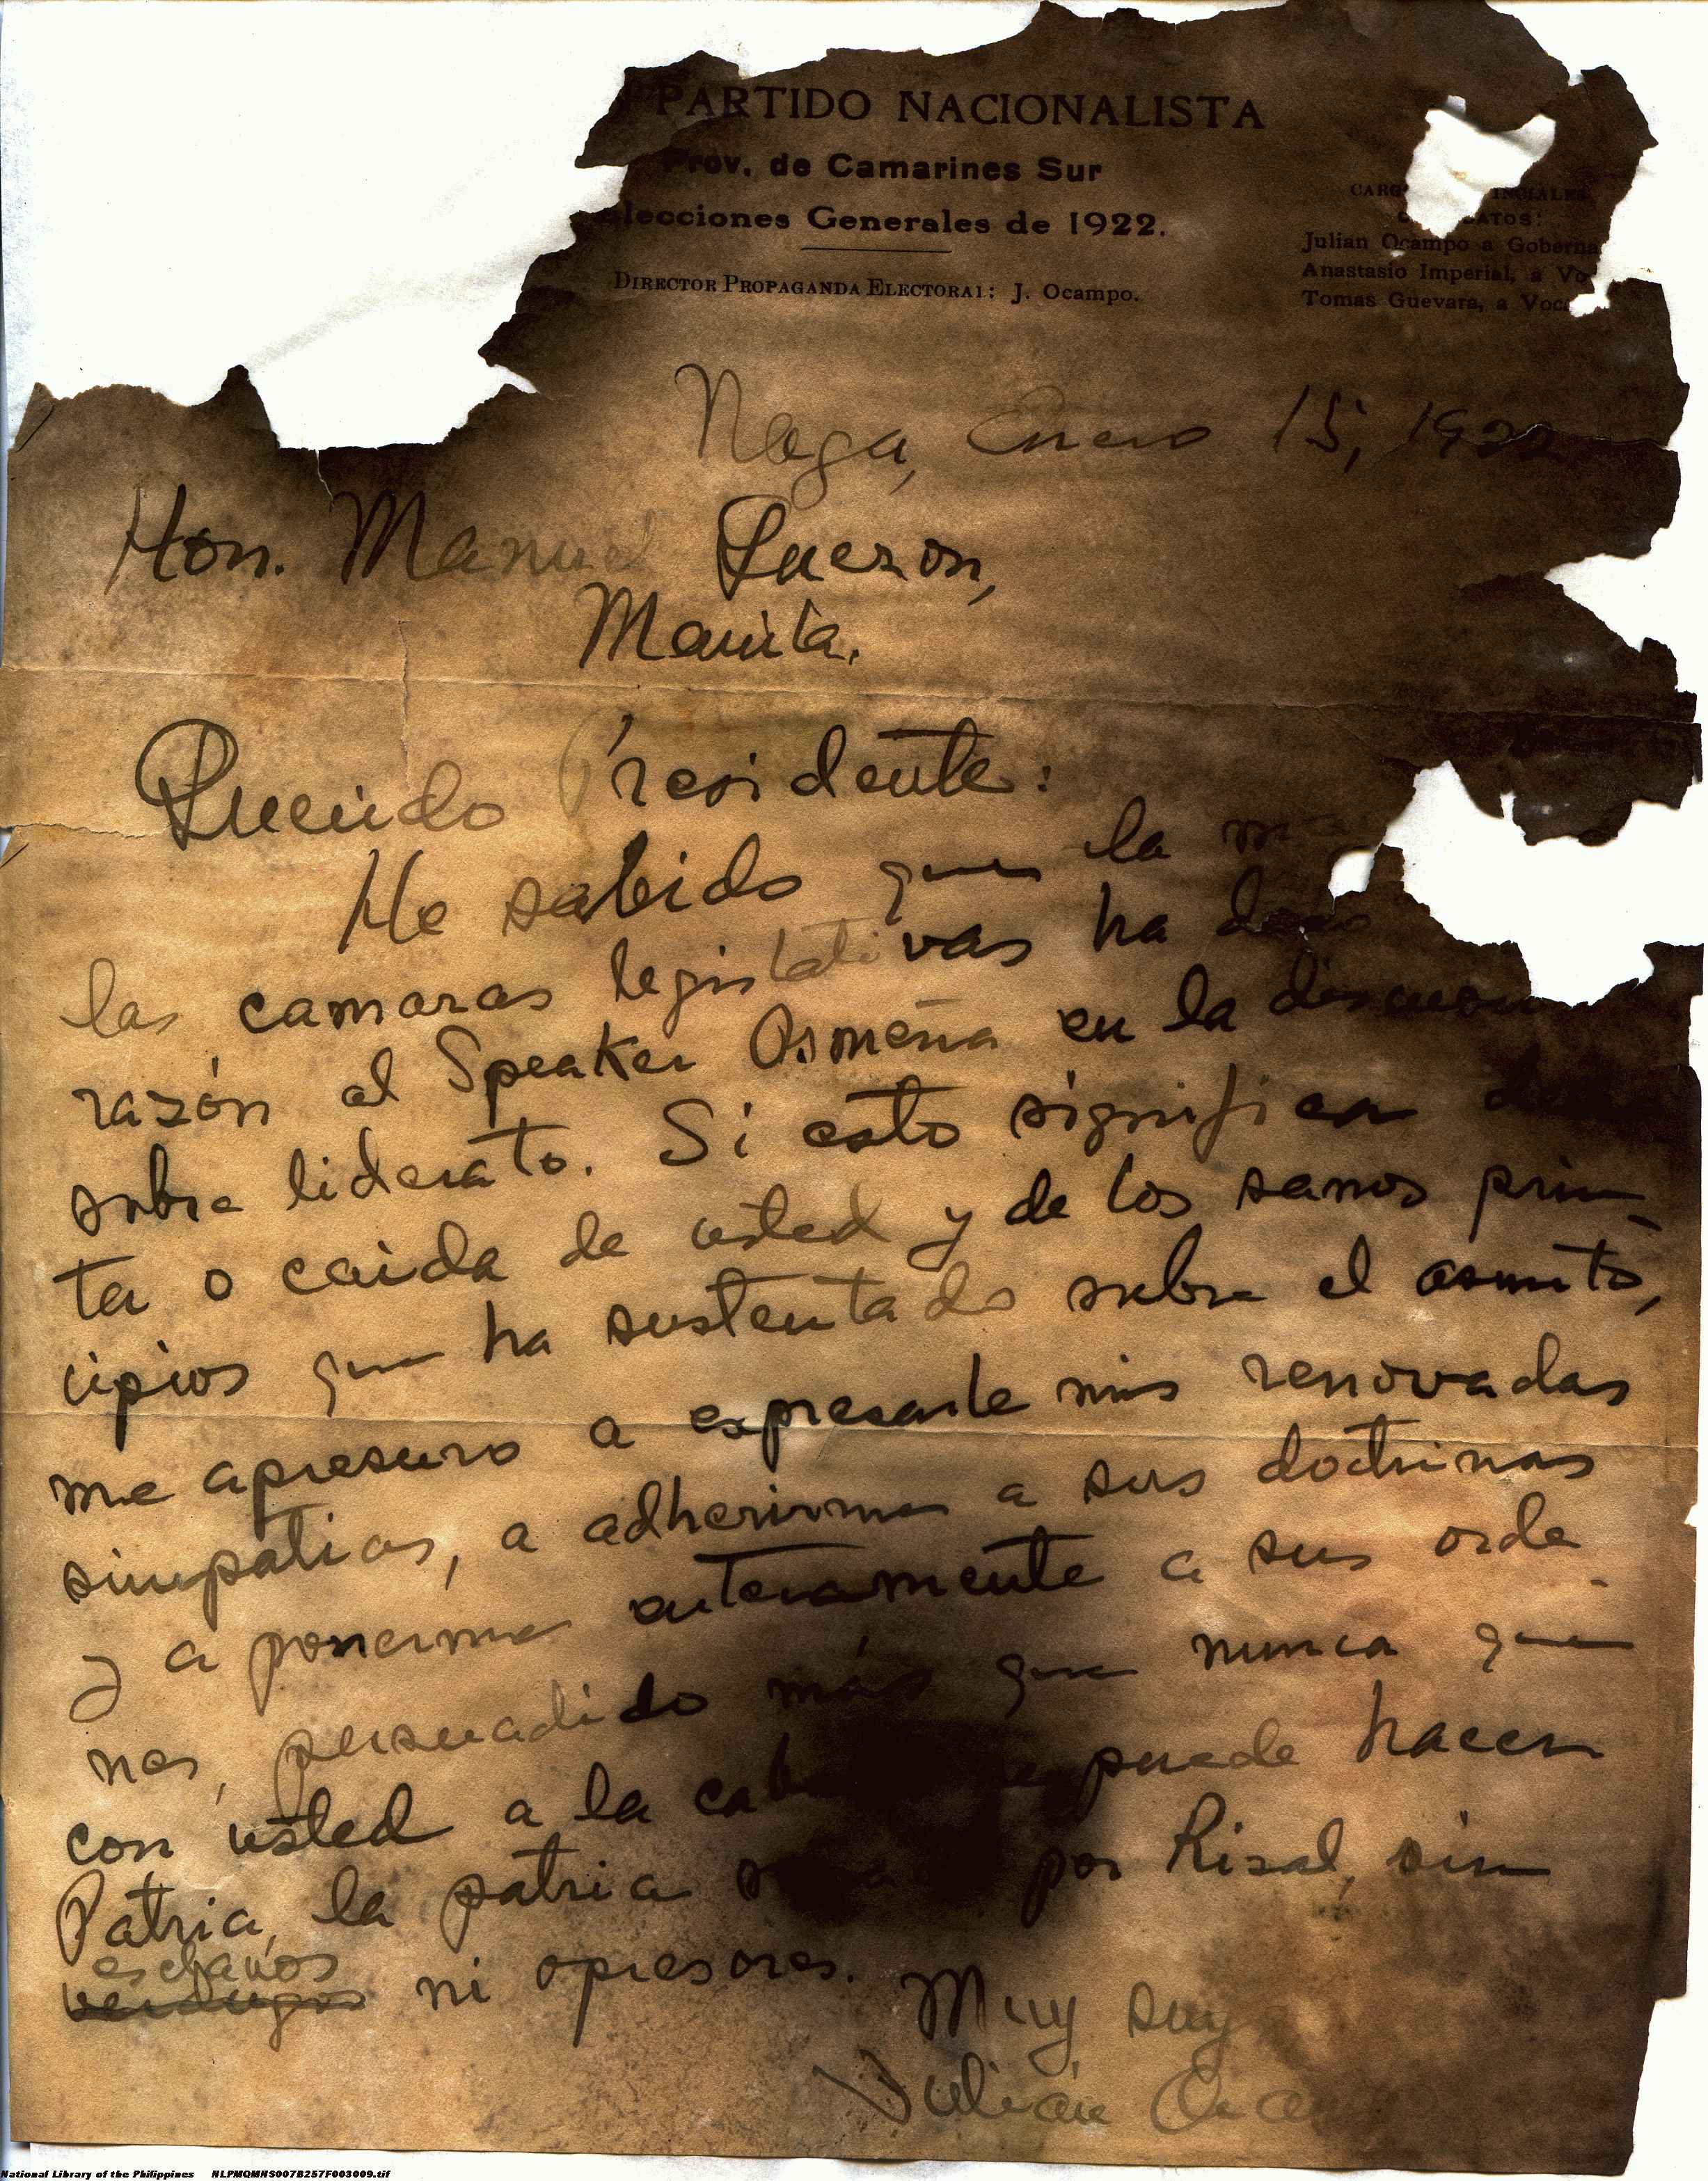 PARTIDO NACIONALISTA
Prov. de Camarines Sur
Elecciones Generales de 1922.
DIRECTOR PROPAGANDA ELECTORAL: J. Ocampo.
Julian Ocampo a Goberna
Anastasio Imperial, a Vo
Tomas Guevara, a Voc
Naga, Enero 15, 1922
Hon. Manuel Quezon,
Manila.
Querido Presidente:
He sabido que la
las camaras legislativas ha dado
razón al Speaker Osmeña en la discusión
sobre liderato. Si esto significa
ta o caida de usted y de los sanos prin-
cipios que ha sustentado sobre el asunto,
me apresuro a expresarle mis renovadas
simpatias, a adherirme a sus doctrinas
y a ponerme enteramente a sus orde-
nes, persuadido más que nunca que
con usted a la puede hacer
Patria, la patria por Risal, sin
esclavos
verdugos ni opresores.
Muy suyo
Julián Ocam
National Library of the Philippines NLPMQMNS007B257F003009.tif